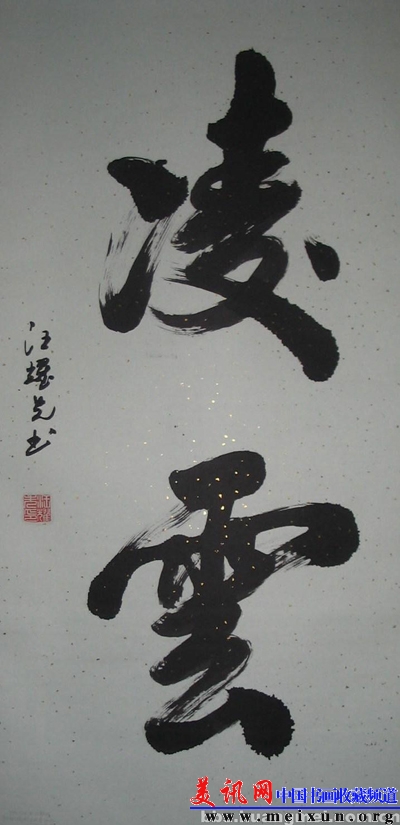 凌雲
汪耀先书
美讯网 中国书画收藏频道
www.meixun.org